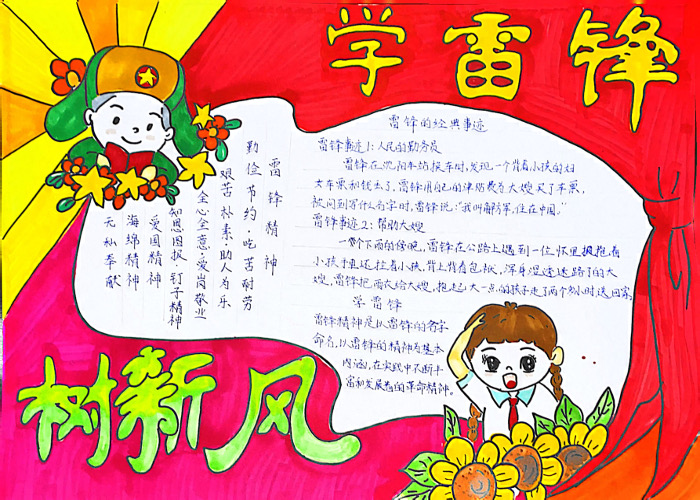 学雷锋
雷锋精神
勤俭节约·吃苦耐劳
艰苦朴素·助人为乐
全心全意·爱岗敬业
知恩图报 钉子精神
爱国精神
海绵精神
无私奉献
雷锋的经典事迹
雷锋事迹1:人民的勤务员
雷锋在沈阳车站换车时,发现一个背着小孩的妇
女车票和钱丢了,雷锋用自己的津贴费为大嫂买了车票,
被问到等什么名字时,雷锋说:"我叫解放军,住在中国。"
雷锋事迹2:帮助大嫂
一个下雨的傍晚,雷锋在公路上遇到一位怀里抱着
小孩手里还拉着小孩,背上背着包袱,浑身湿透迷路了的大
嫂,雷锋把雨衣给大嫂,抱起大一点的孩子走了两个多小时送回家。
学雷锋
雷锋精神是以雷锋的名字
命名,以雷锋的精神为基本
内涵,在实践中不断丰
富和发展着的革命精神。
树新风